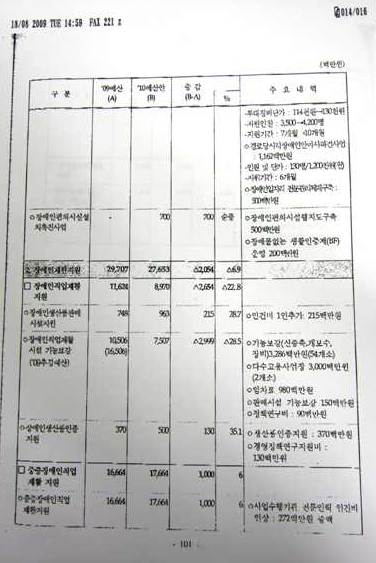 18/08 2009 TUE 14:59 FAX 221 2
014/016
(백만원)
구 분 '09예산 (A) '10예산안 (B) 증 감 (B-A) % 주 요 내 역
·부대경비단가 : 114천원→130천원
·지원인원 : 3,500→4,200명
·지원기간 : 7개월→10개월
○경로당시각장애인안마사파견사업
: 1,162백만원
·인원 및 단가 : 130명/1,200천원(월)
·지원기간 : 6개월
○장애인일자리 전문관리체계구축 :
500백만원
○장애인편의시설설치촉진사업 - 700 700 순증
○장애인편의시설 구축
500백만원
○장애물없는 생활인증제(BF)
운영 200백만원
장애인재활지원 29,707 27,653 △2,054 △6.9
□ 장애인직업재활 지원 11,624 8,970 △2,654 △22.8
○장애인생산품판매시설지원 748 963 215 28.7 ○인건비 1인추가: 215백만원
○장애인직업재활시설 기능보강 ('09추경예산) 10,506 (16,506) 7,507 △2,999 △28.5
○기능보강(신증축,개보수,
장비)3,286백만원(54개소)
○다수고용사업장 3,000백만원
(2개소)
○임차료 980백만원
○판매시설 기능보강 150백만원
○정책연구비 : 90백만원
○장애인생산품인증 지원 370 500 130 35.1
○생산품인증지원 : 370백만원
○경영정책연구지원비 :
130백만원
□ 중증장애인직업 재활 지원 16,664 17,664 1,000 6
○중증장애인직업 재활지원 16,664 17,664 1,000 6
○사업수행기관 전문인력 인건비
인상 : 272백만원 증액
- 101 -